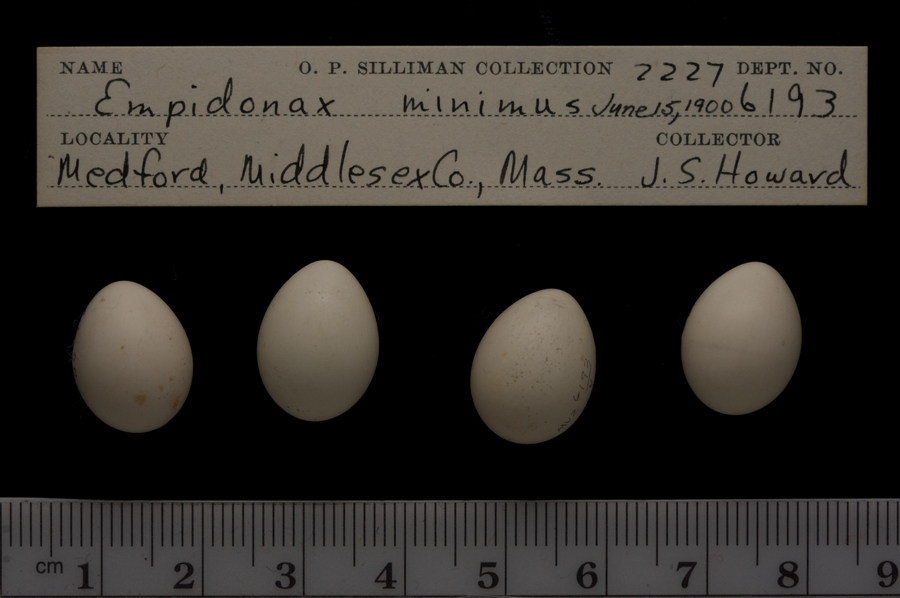 NAME O. P. SILLIMAN COLLECTION 2227 DEPT. NO.
Empidonax minimus June 15, 1900 6193
LOCALITY COLLECTOR
Medford, Middlesex Co., Mass. J. S. Howard
6193
cm 1 2 3 4 5 6 7 8 9